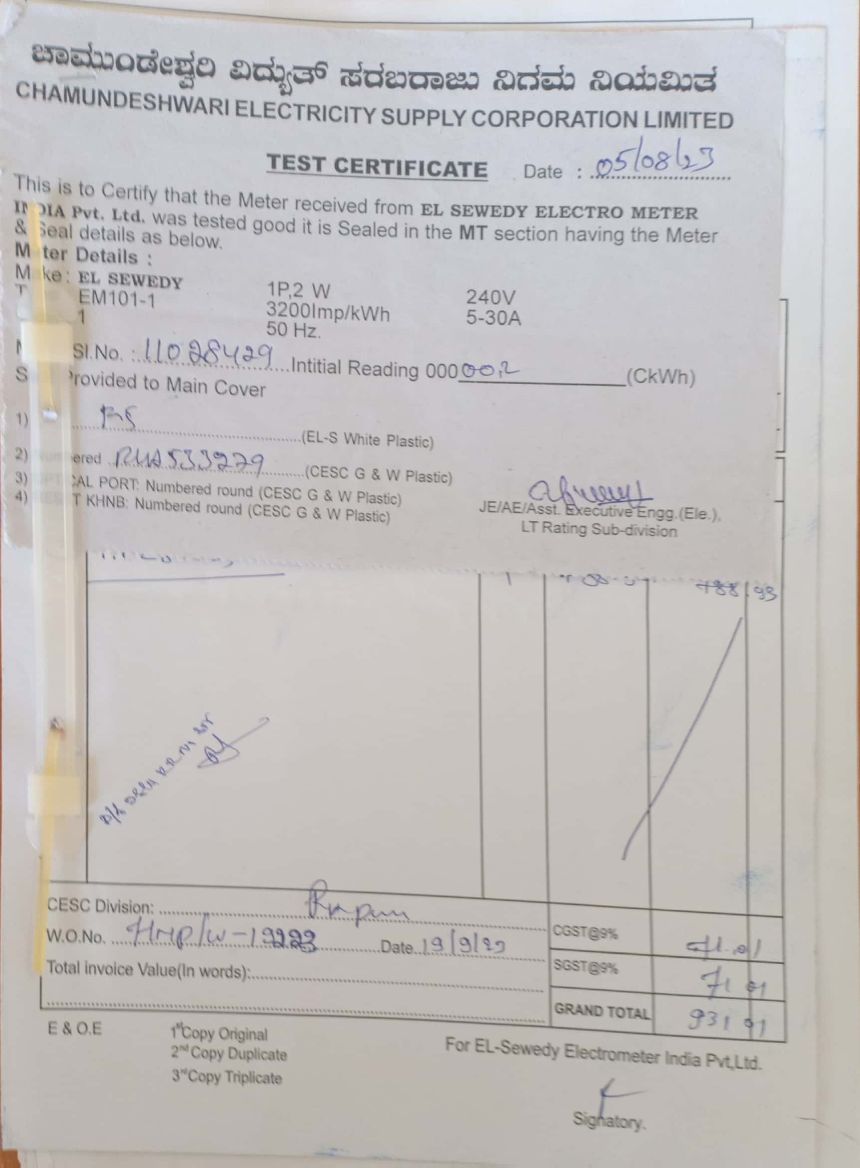 ಚಾಮುಂಡೇಶ್ವರಿ ವಿದ್ಯುತ್ ಸರಬರಾಜು ನಿಗಮ ನಿಯಮಿತ
CHAMUNDESHWARI ELECTRICITY SUPPLY CORPORATION LIMITED
TEST CERTIFICATE Date : 05/08/23
This is to Certify that the Meter received from EL SEWEDY ELECTRO METER
INDIA Pvt. Ltd. was tested good it is Sealed in the MT section having the Meter
& Seal details as below.
Meter Details :
Make : EL SEWEDY 1P,2 W 240V
T EM101-1 3200Imp/kWh 5-30A
1 50 Hz.
Sl.No. : 11028429 Intitial Reading 000 00.2 (CkWh)
S Provided to Main Cover
1) (EL-S White Plastic)
2) ered RUA533229 (CESC G & W Plastic)
3) CAL PORT: Numbered round (CESC G & W Plastic)
4) T KHNB: Numbered round (CESC G & W Plastic)
JE/AE/Asst. Executive Engg.(Ele.),
LT Rating Sub-division
788 93
CESC Division:
W.O.No. Date 19/9/23
Total invoice Value(In words):
CGST@9% 71.01
SGST@9% 71 01
GRAND TOTAL 931 91
E & O.E 1st Copy Original
2nd Copy Duplicate
3rd Copy Triplicate
For EL-Sewedy Electrometer India Pvt,Ltd.
Signatory.